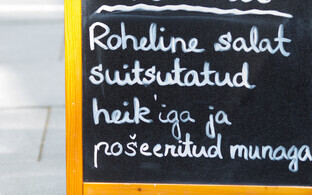 Roheline salat
suitsutatud
heik'iga ja
pošeeritud munaga